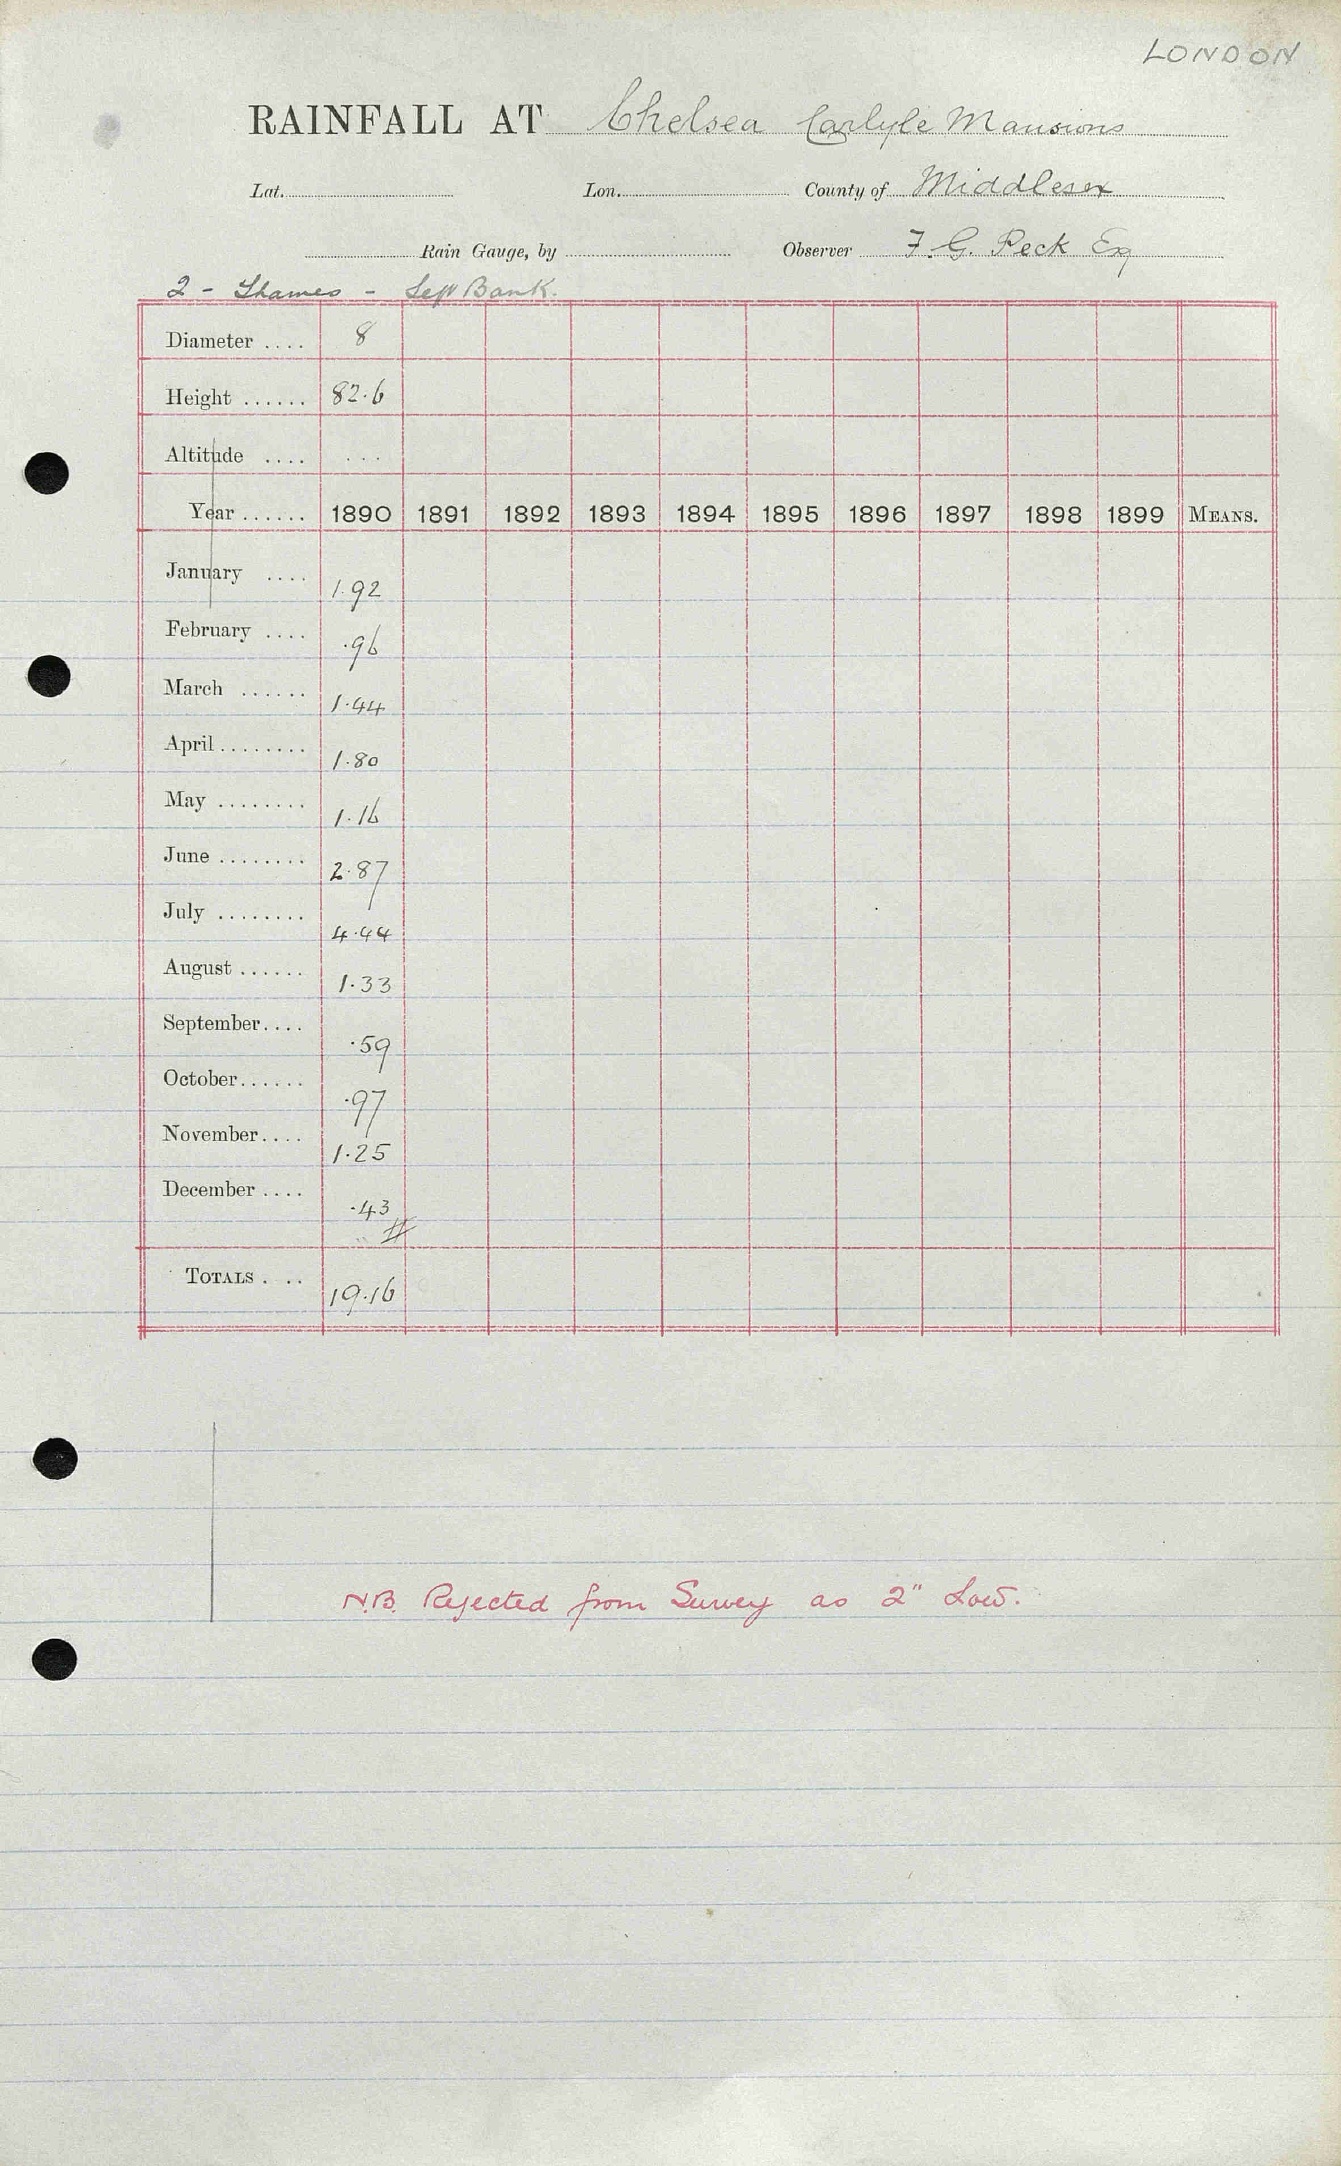 LONDON
RAINFALL AT Chelsea Carlyle Mansions
Lat. Lon. County of Middlesex
Rain Gauge, by Observer F. G. Peck Esq
2 - Thames - Left Bank.
Diameter .... 8
Height ...... 82.6
Altitude .... ...
Year ...... 1890 1891 1892 1893 1894 1895 1896 1897 1898 1899 MEANS.
January .... 1.92
February .... .96
March ...... 1.44
April ........ 1.80
May ........ 1.16
June ........ 2.87
July ........ 4.44
August ...... 1.33
September.... .59
October...... .97
November.... 1.25
December .... .43
#
TOTALS . .. 19.16
N.B. Rejected from Survey as 2" Low.